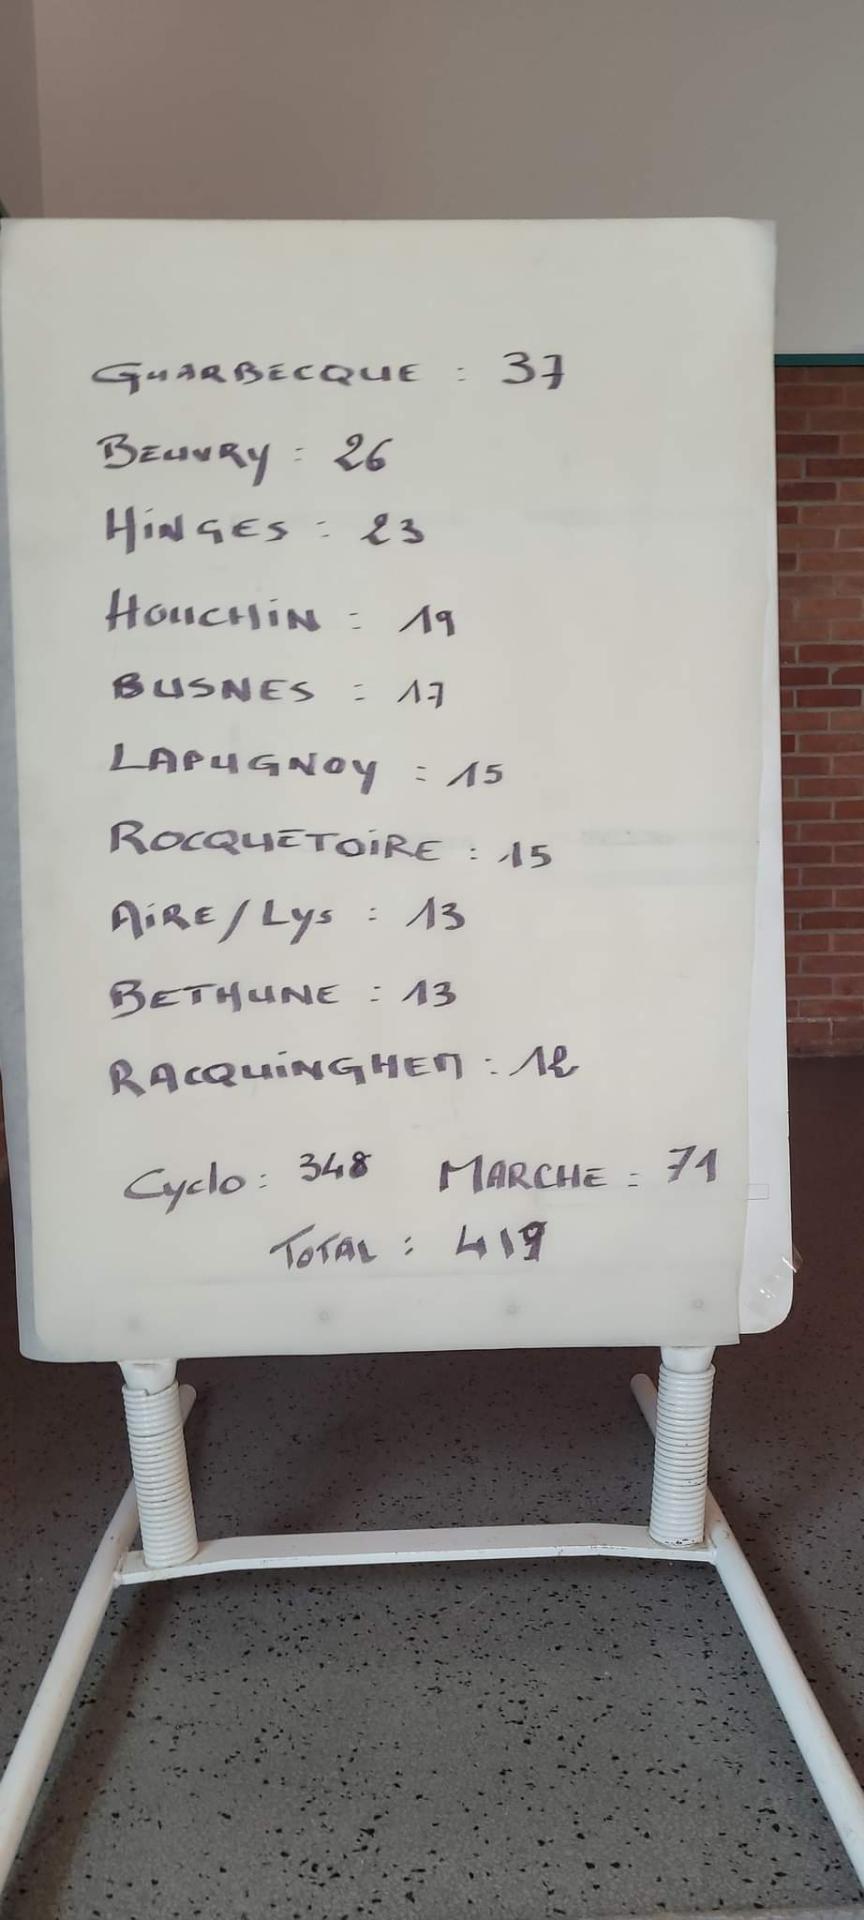 GUARBECQUE : 37
BEUVRY : 26
HiNGES : 23
HOUCHiN : 19
BUSNES : 17
LAPUGNOY : 15
ROCQUETOiRE : 15
AiRE/LYS : 13
BETHUNE : 13
RACQUiNGHEM : 12
Cyclo : 348 MARCHE : 71
TOTAL : 419